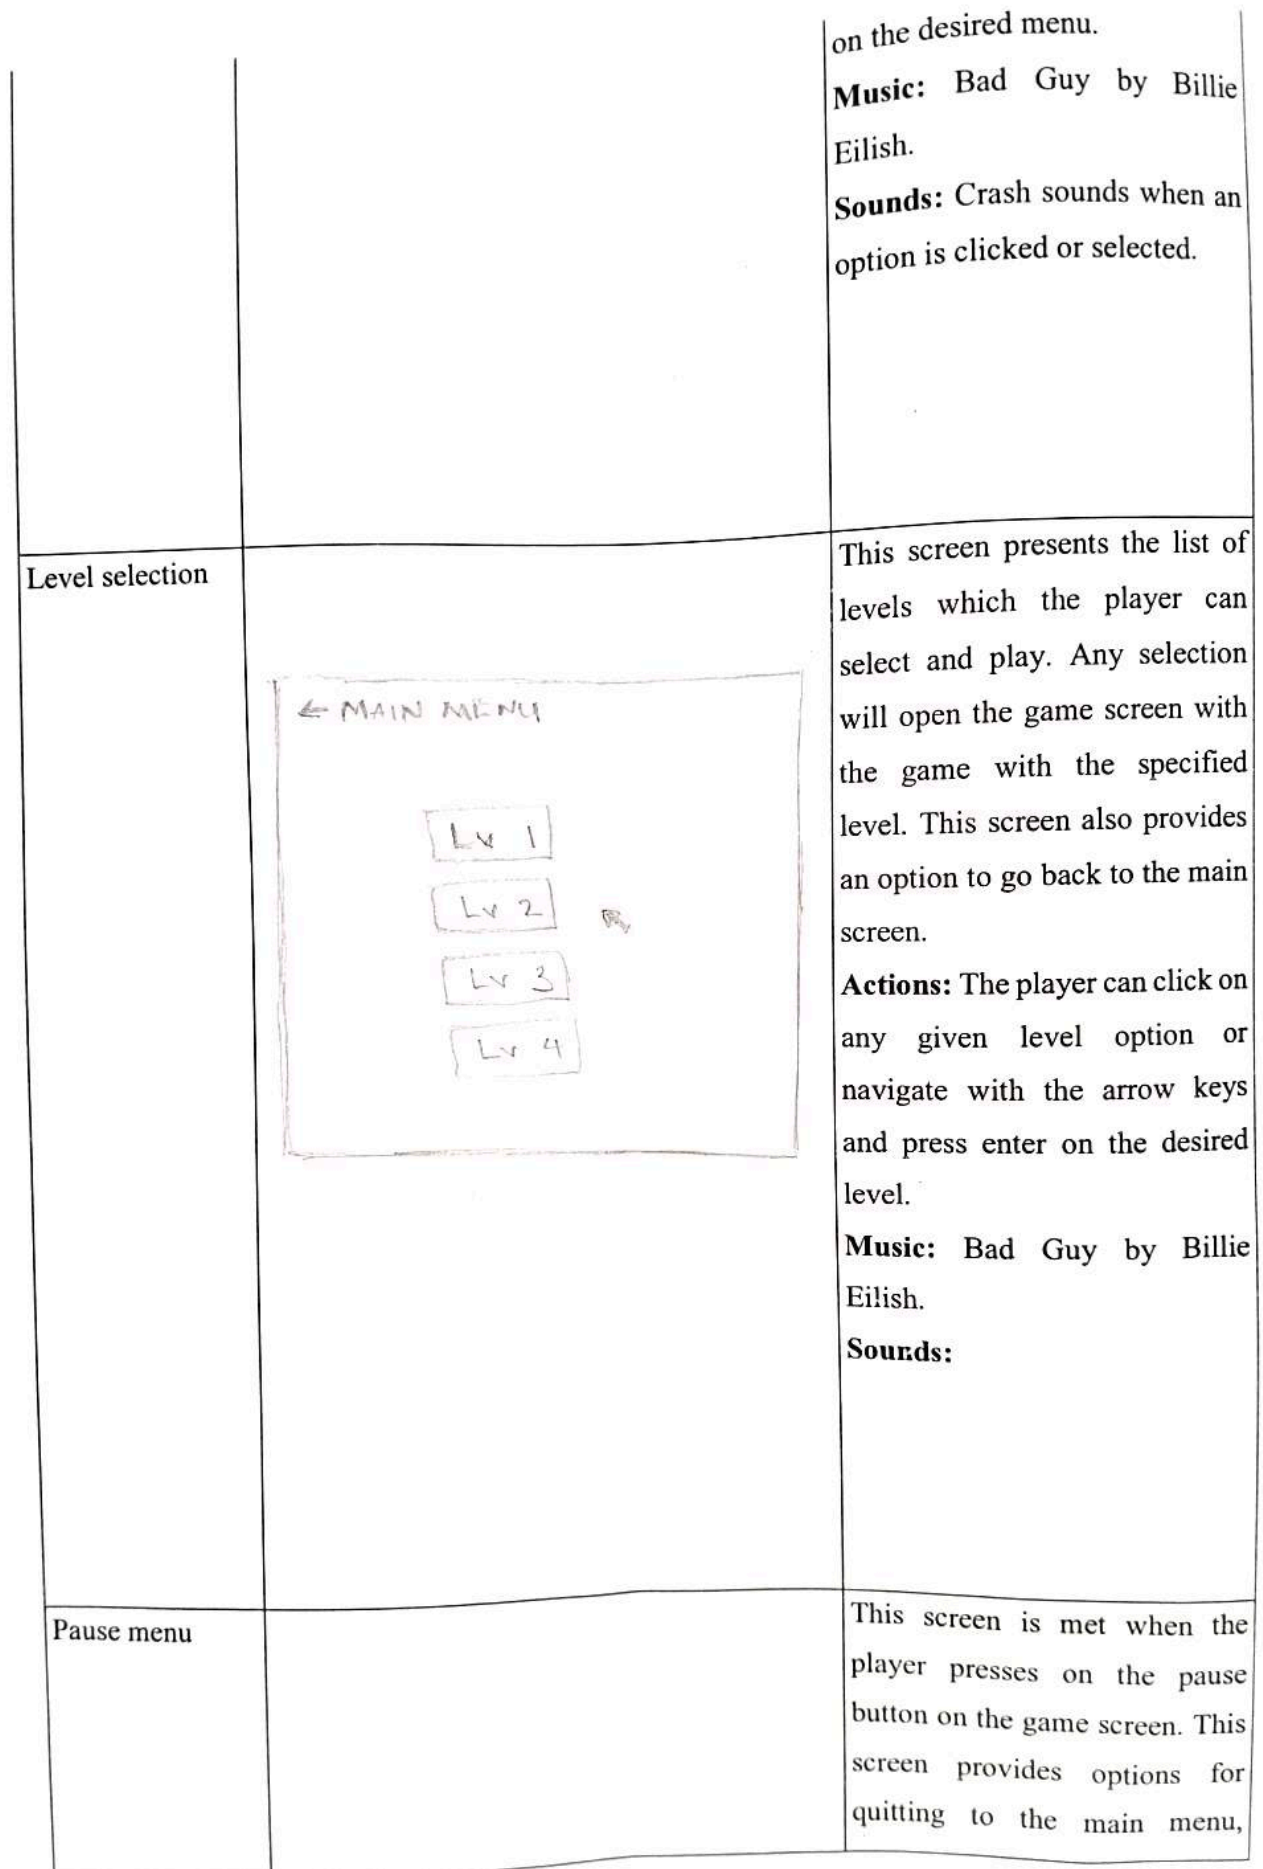 on the desired menu.
Music: Bad Guy by Billie
Eilish.
Sounds: Crash sounds when an
option is clicked or selected.
Level selection
← MAIN MENU
Lv 1
Lv 2
Lv 3
Lv 4
This screen presents the list of
levels which the player can
select and play. Any selection
will open the game screen with
the game with the specified
level. This screen also provides
an option to go back to the main
screen.
Actions: The player can click on
any given level option or
navigate with the arrow keys
and press enter on the desired
level.
Music: Bad Guy by Billie
Eilish.
Sounds:
Pause menu
This screen is met when the
player presses on the pause
button on the game screen. This
screen provides options for
quitting to the main menu,